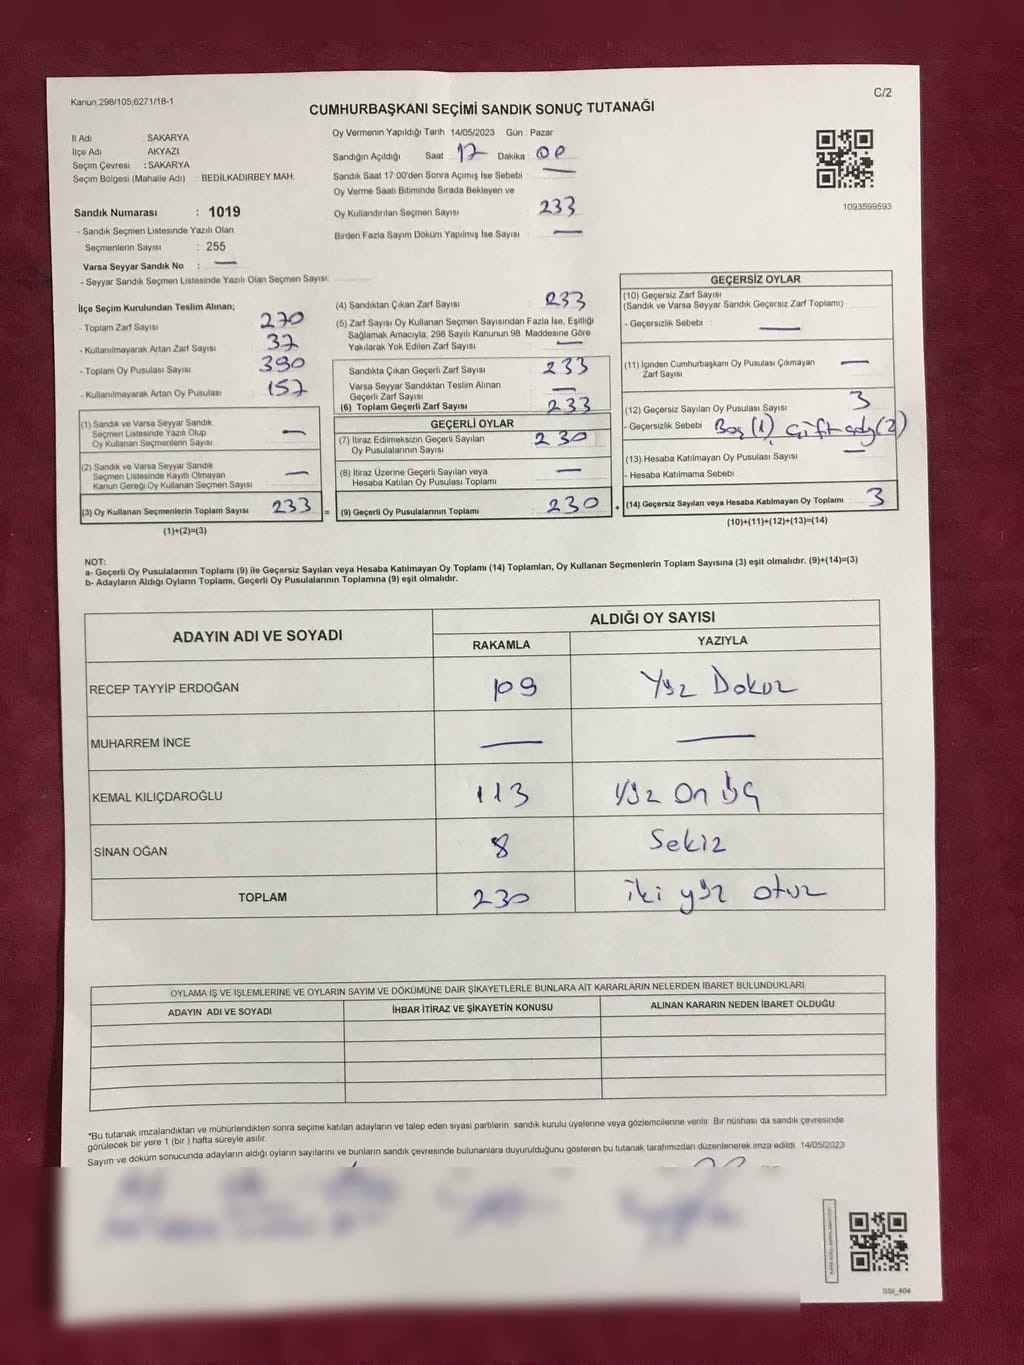 Kanun 298/105;6271/18-1
C/2
CUMHURBAŞKANI SEÇİMİ SANDIK SONUÇ TUTANAĞI
İl Adı SAKARYA
İlçe Adı AKYAZI
Seçim Çevresi : SAKARYA
Seçim Bölgesi (Mahalle Adı) : BEDİLKADIRBEY MAH.
Sandık Numarası : 1019
- Sandık Seçmen Listesinde Yazılı Olan
Seçmenlerin Sayısı : 255
Varsa Seyyar Sandık No : —
- Seyyar Sandık Seçmen Listesinde Yazılı Olan Seçmen Sayısı
Oy Vermenin Yapıldığı Tarih 14/05/2023 Gün : Pazar
Sandığın Açıldığı Saat 17 Dakika : 00
Sandık Saat 17:00'den Sonra Açımış İse Sebebi : —
Oy Verme Saati Bitiminde Sırada Bekleyen ve
Oy Kullandırılan Seçmen Sayısı : 233
Birden Fazla Sayım Döküm Yapılmış İse Sayısı : —
1093599593
İlçe Seçim Kurulundan Teslim Alınan;
- Toplam Zarf Sayısı : 270
- Kullanılmayarak Artan Zarf Sayısı : 37
- Toplam Oy Pusulası Sayısı : 390
- Kullanılmayarak Artan Oy Pusulası : 157
(1) Sandık ve Varsa Seyyar Sandık
Seçmen Listesinde Yazılı Olup
Oy Kullanan Seçmenlerin Sayısı : —
(2) Sandık ve Varsa Seyyar Sandık
Seçmen Listesinde Kayıtlı Olmayan
Kanun Gereği Oy Kullanan Seçmen Sayısı : —
(3) Oy Kullanan Seçmenlerin Toplam Sayısı : 233 =
(1)+(2)=(3)
(4) Sandıktan Çıkan Zarf Sayısı : 233
(5) Zarf Sayısı Oy Kullanan Seçmen Sayısından Fazla İse, Eşitliği
Sağlamak Amacıyla, 298 Sayılı Kanunun 98. Maddesine Göre
Yakılarak Yok Edilen Zarf Sayısı : —
Sandıkta Çıkan Geçerli Zarf Sayısı : 233
Varsa Seyyar Sandıktan Teslim Alınan
Geçerli Zarf Sayısı : —
(6) Toplam Geçerli Zarf Sayısı : 233
GEÇERLİ OYLAR
(7) İtiraz Edilmeksizin Geçerli Sayılan
Oy Pusulalarının Sayısı : 230
(8) İtiraz Üzerine Geçerli Sayılan veya
Hesaba Katılan Oy Pusulası Toplamı : —
(9) Geçerli Oy Pusulalarının Toplamı : 230 +
GEÇERSİZ OYLAR
(10) Geçersiz Zarf Sayısı :
(Sandık ve Varsa Seyyar Sandık Geçersiz Zarf Toplamı)
- Geçersizlik Sebebi : —
(11) İçinden Cumhurbaşkanı Oy Pusulası Çıkmayan : —
Zarf Sayısı
(12) Geçersiz Sayılan Oy Pusulası Sayısı : 3
- Geçersizlik Sebebi : Boş (1) Çift (2)
(13) Hesaba Katılmayan Oy Pusulası Sayısı : —
- Hesaba Katılmama Sebebi
(14) Geçersiz Sayılan veya Hesaba Katılmayan Oy Toplamı : 3
(10)+(11)+(12)+(13)=(14)
NOT:
a- Geçerli Oy Pusulalarının Toplamı (9) ile Geçersiz Sayılan veya Hesaba Katılmayan Oy Toplamı (14) Toplamları, Oy Kullanan Seçmenlerin Toplam Sayısına (3) eşit olmalıdır. (9)+(14)=(3)
b- Adayların Aldığı Oyların Toplamı, Geçerli Oy Pusulalarının Toplamına (9) eşit olmalıdır.
ADAYIN ADI VE SOYADI ALDIĞI OY SAYISI
RAKAMLA YAZIYLA
RECEP TAYYİP ERDOĞAN 109 Yüz Dokuz
MUHARREM İNCE — —
KEMAL KILIÇDAROĞLU 113 Yüz On üç
SİNAN OĞAN 8 Sekiz
TOPLAM 230 iki yüz otuz
OYLAMA İŞ VE İŞLEMLERİNE VE OYLARIN SAYIM VE DÖKÜMÜNE DAİR ŞİKAYETLERLE BUNLARA AİT KARARLARIN NELERDEN İBARET BULUNDUKLARI
ADAYIN ADI VE SOYADI İHBAR İTİRAZ VE ŞİKAYETİN KONUSU ALINAN KARARIN NEDEN İBARET OLDUĞU
*Bu tutanak imzalandıktan ve mühürlendikten sonra seçime katılan adayların ve talep eden siyasi partilerin sandık kurulu üyelerine veya gözlemcilerine verilir. Bir nüshası da sandık çevresinde
görülecek bir yere 1 (bir) hafta süreyle asılır.
Sayım ve döküm sonucunda adayların aldığı oyların sayılarını ve bunların sandık çevresinde bulunanlara duyurulduğunu gösteren bu tutanak tarafımızdan düzenlenerek imza edildi. 14/05/2023
SSI_404